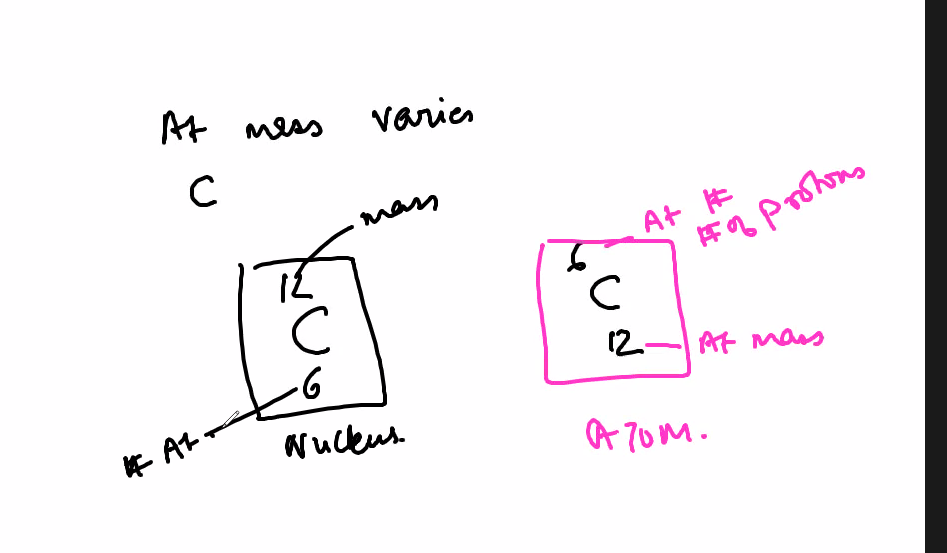 At mass varies
C
mass
12
C
6
# At
Nucleus.
At #
# of protons
6
C
12
At mass
ATOM.